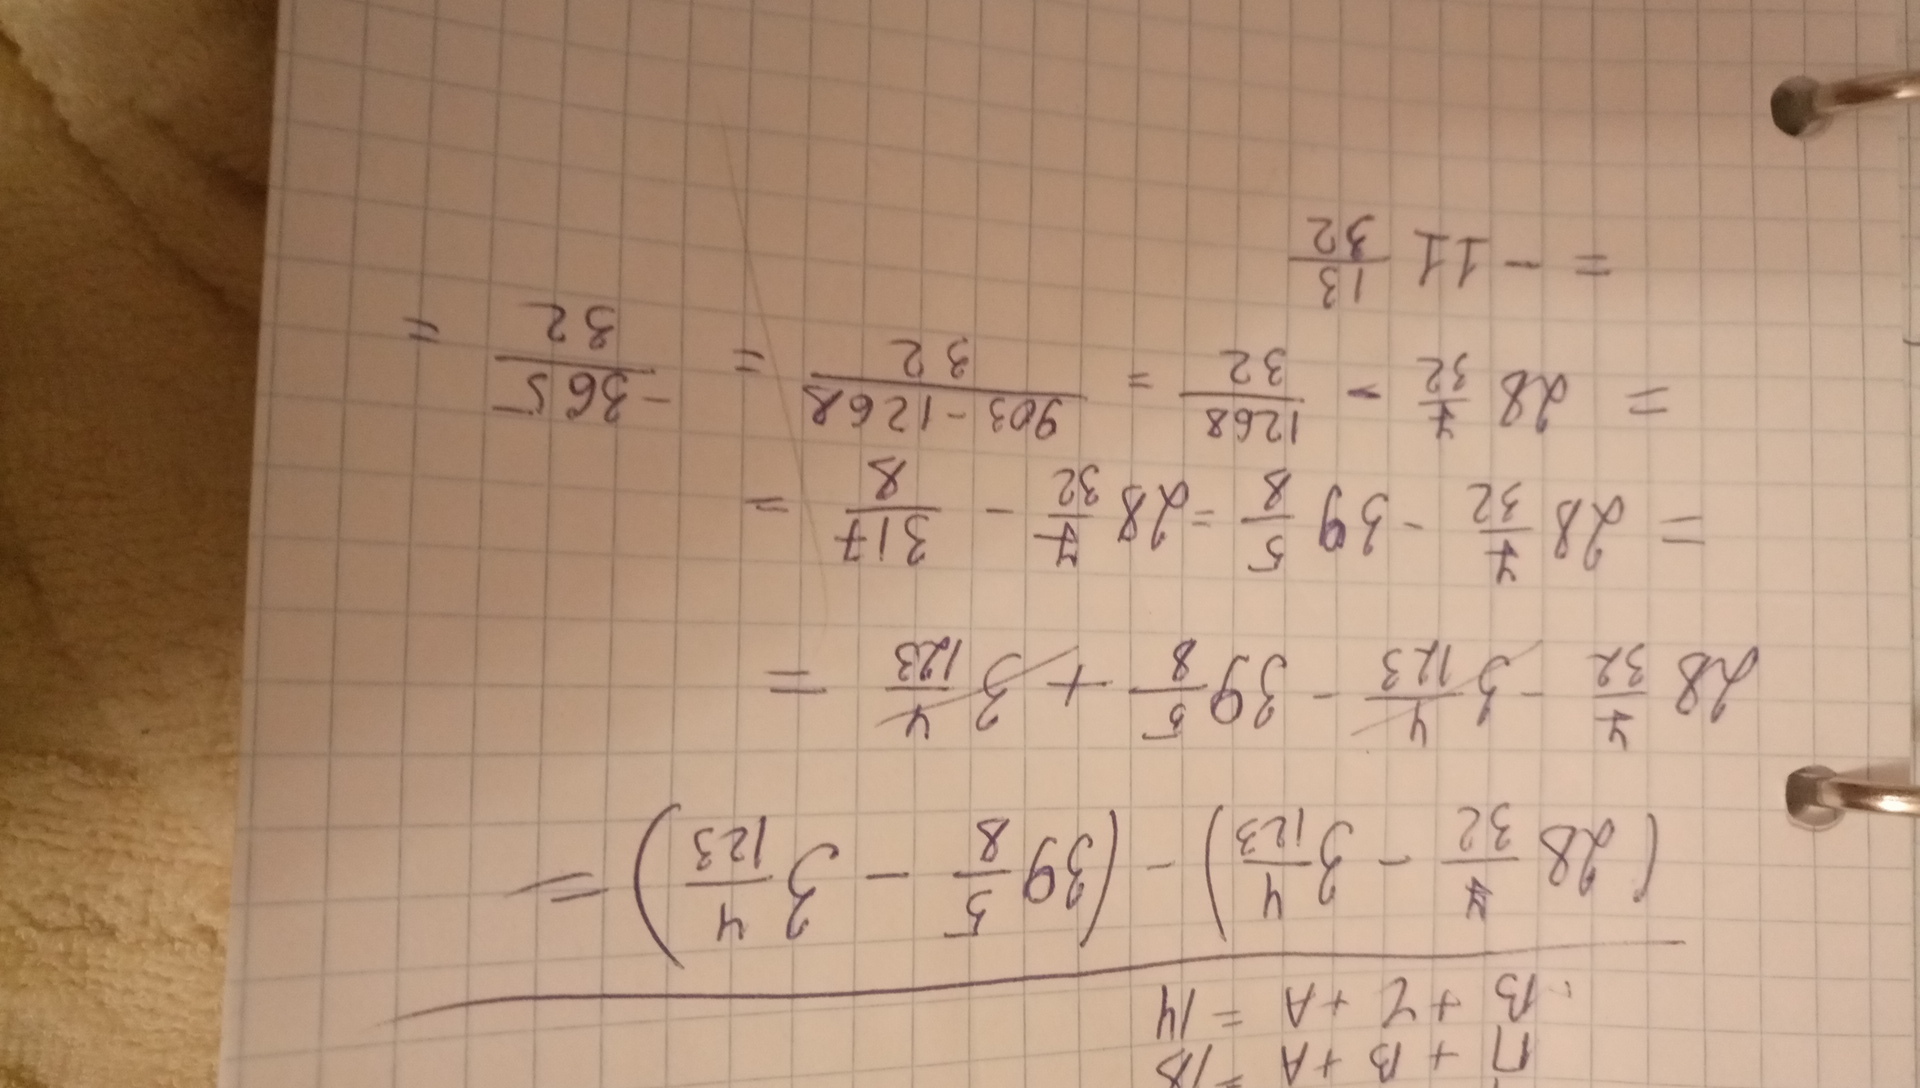 П + B + A = 18
B + Z + A = 14
(28 7/32 - 3 4/123) - (39 5/8 - 3 4/123) =
28 7/32 - 3 4/123 - 39 5/8 + 3 4/123 =
= 28 7/32 - 39 5/8 = 28 7/32 - 317/8 =
= 28 7/32 - 1268/32 = 903-1268/32 = -365/32 =
= - 11 13/32